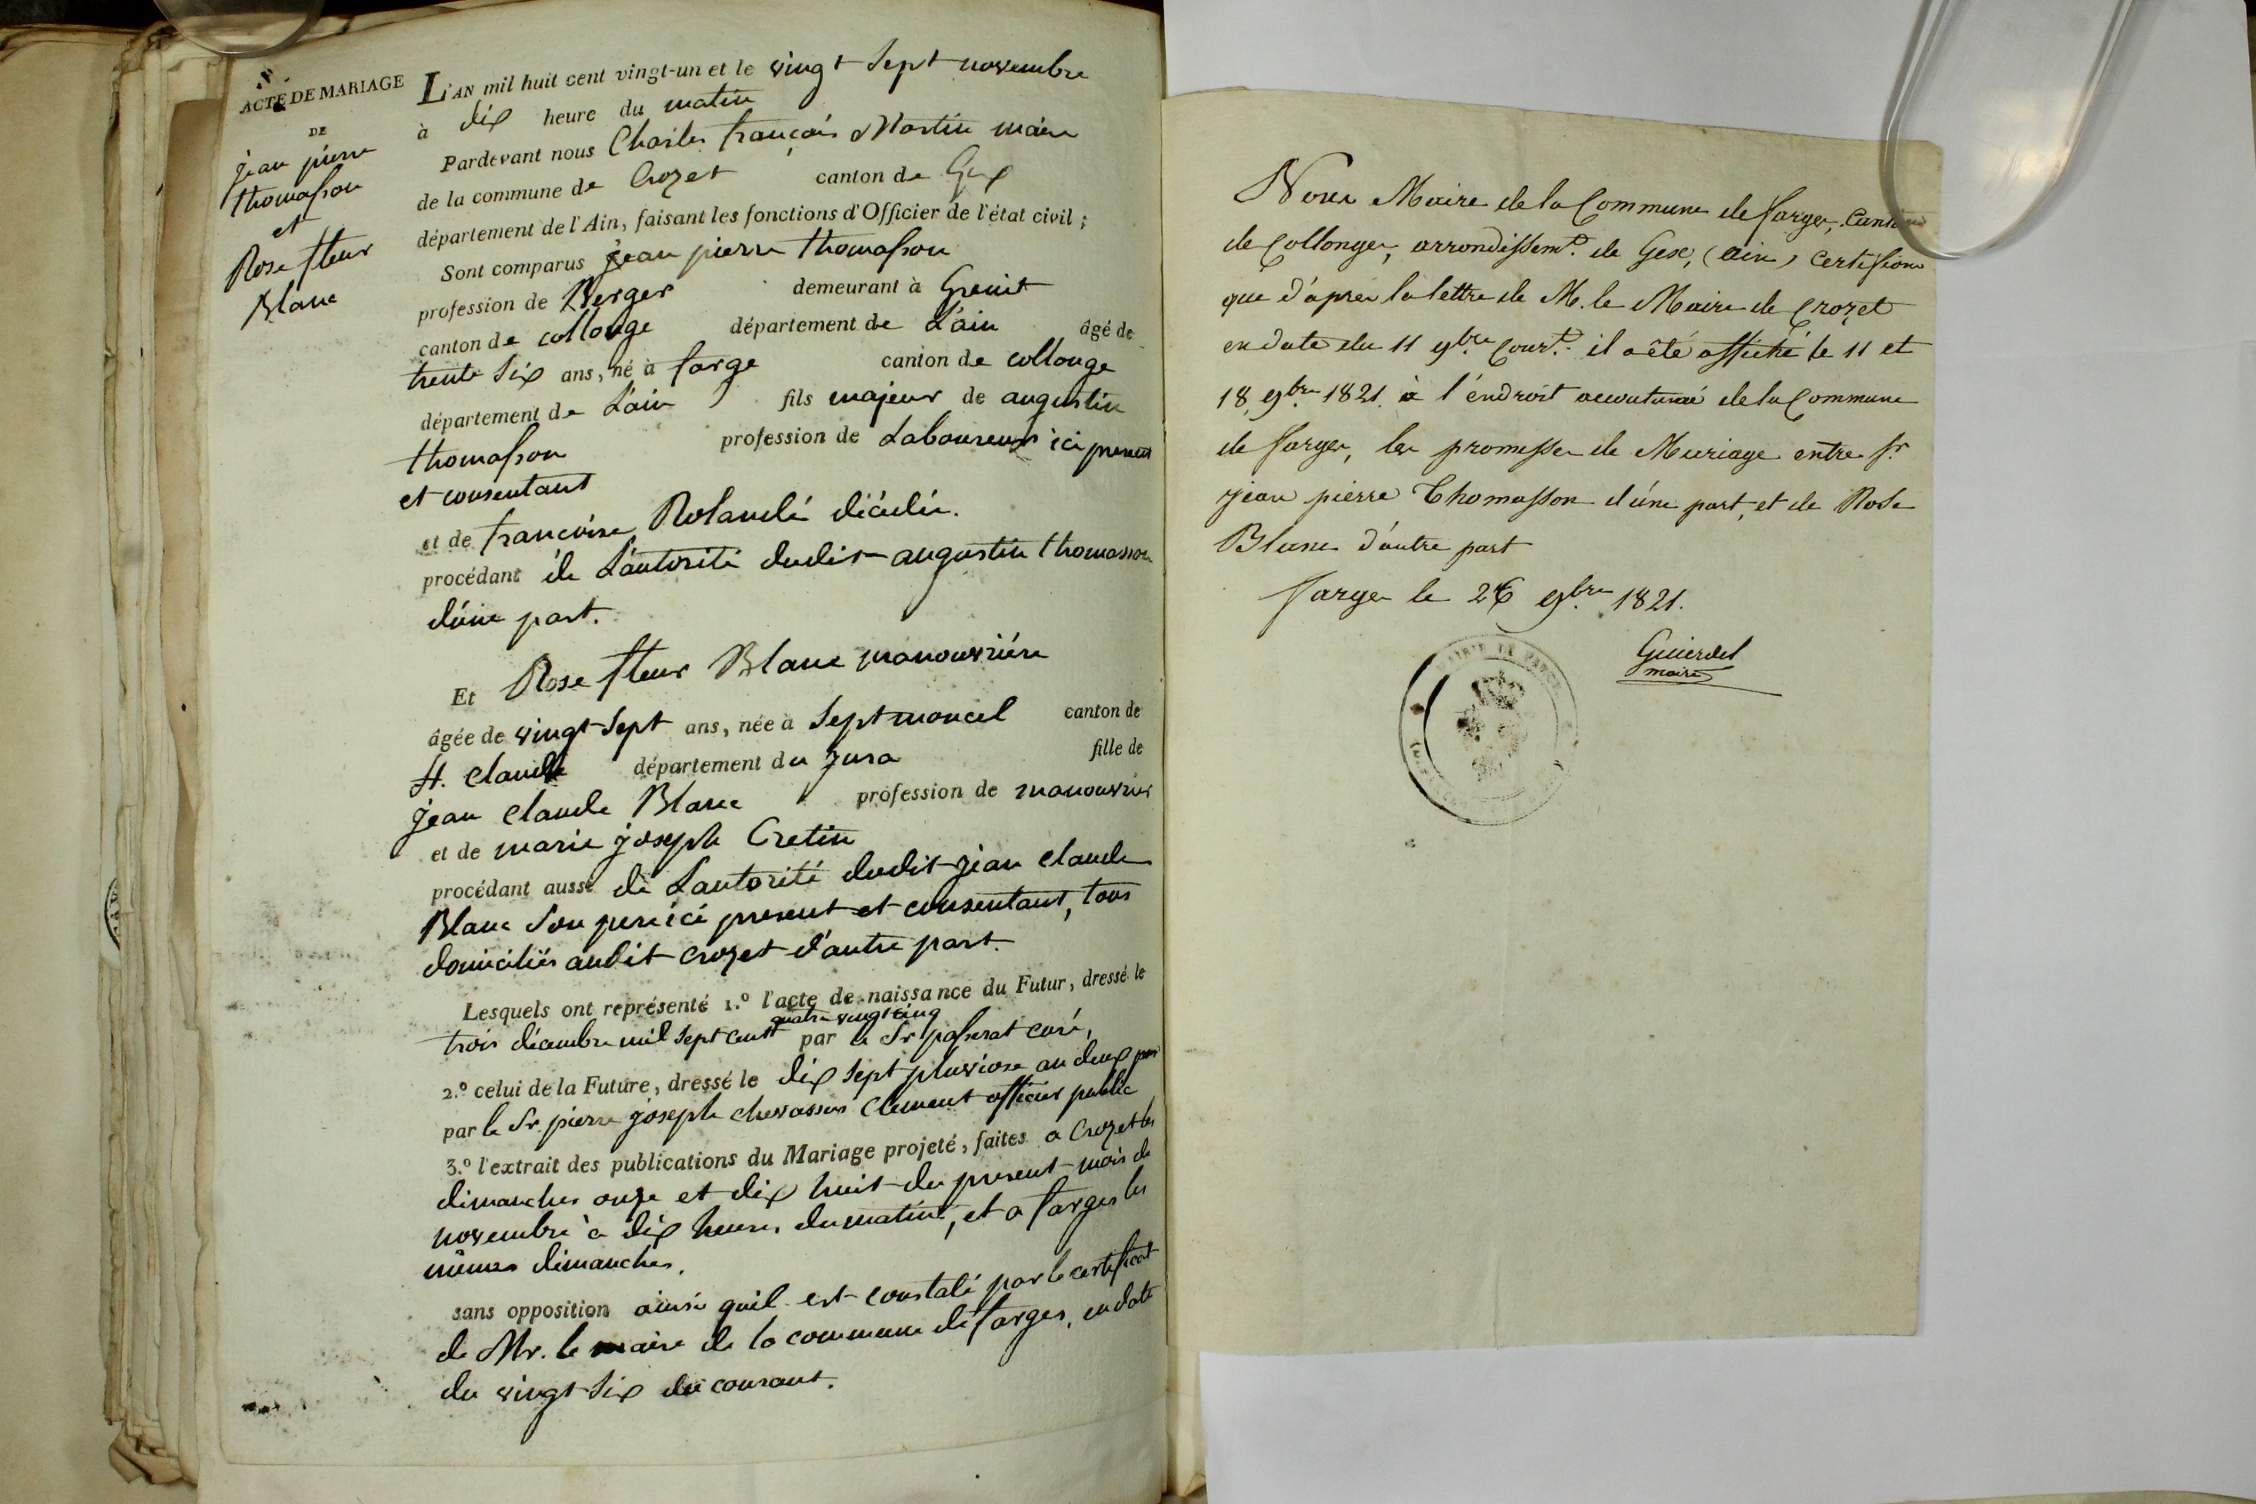 ACTE DE MARIAGE
DE
jean pierre
thomasson
et
Rose fleur
Blanc
L'AN mil huit cent vingt-un et le vingt sept novembre
à dix heure du matin
Pardevant nous Charles françois Martin maire
de la commune de Crozet canton de Gex
département de l'Ain, faisant les fonctions d'Officier de l'état civil ;
Sont comparus jean pierre thomasson
profession de Berger demeurant à Greint
canton de collonge département de L'ain âgé de
trente six ans, né à farge canton de collonge
département de L'ain fils majeur de augustin
thomasson profession de Laboureur ici present
et consentant
et de francoise Rolandé décédée.
procédant de L'autorité dudit augustin thomasson
d'une part.
Et Rose fleur Blanc manouvriére
âgée de vingt sept ans, née à Septmoncel canton de
st. claude département du jura fille de
jean claude Blanc profession de manouvrier
et de marie joseph Cretin
procédant aussi de Lautorité dudit jean claude
Blanc son pere ici present et consentant, tous
domiciliés audit crozet d'autre part.
Lesquels ont représenté 1.º l'acte de naissance du Futur, dressé le
trois décembre mil sept cent quatre vingt cinq par le Sr passerat curé,
2.º celui de la Future, dressé le dix sept pluviose an deux par
par le Sr. pierre joseph chevassus Clement officier public
3.º l'extrait des publications du Mariage projeté, faites a Crozet les
dimanches onze et dix huit du present mois de
novembre à dix heures du matin, et a farges les
mêmes dimanches.
sans opposition ainsi quil est constaté par le certificat
de Mr. le maire de la commune de farges, en date
du vingt six du courant.
Nous Maire de la Commune de farges, Canton
de Collonges, arrondissemt. de Gex, (ain) Certifions
que d'apres la lettre de M. le Maire de Crozet
en date du 11 9bre Court. il a été affiché le 11 et
18 9bre 1821. à l'endroit accoutumé de la Commune
de farges, les promesses de Mariage entre sr.
jean pierre Thomasson d'une part, et de Rose
Blanc d'autre part
farges le 26 9bre 1821.
maire